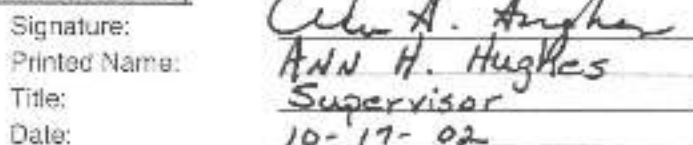 Signature: Ann H. Hughes
Printed Name: ANN H. Hughes
Title: Supervisor
Date: 10-17-02